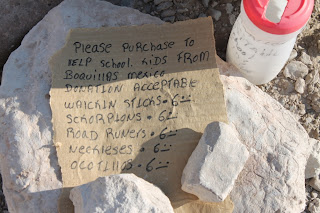 PLEASE PURCHASE TO
HELP SCHOOL. KIDS FROM
BOQUILLAS MEXICO
DONATION ACCEPTABLE
WALCKIN STICKS • 6
SCHORPIONS • 6
ROAD RUNERS • 6
NECKLESES • 6
OCOTLIOS • 6